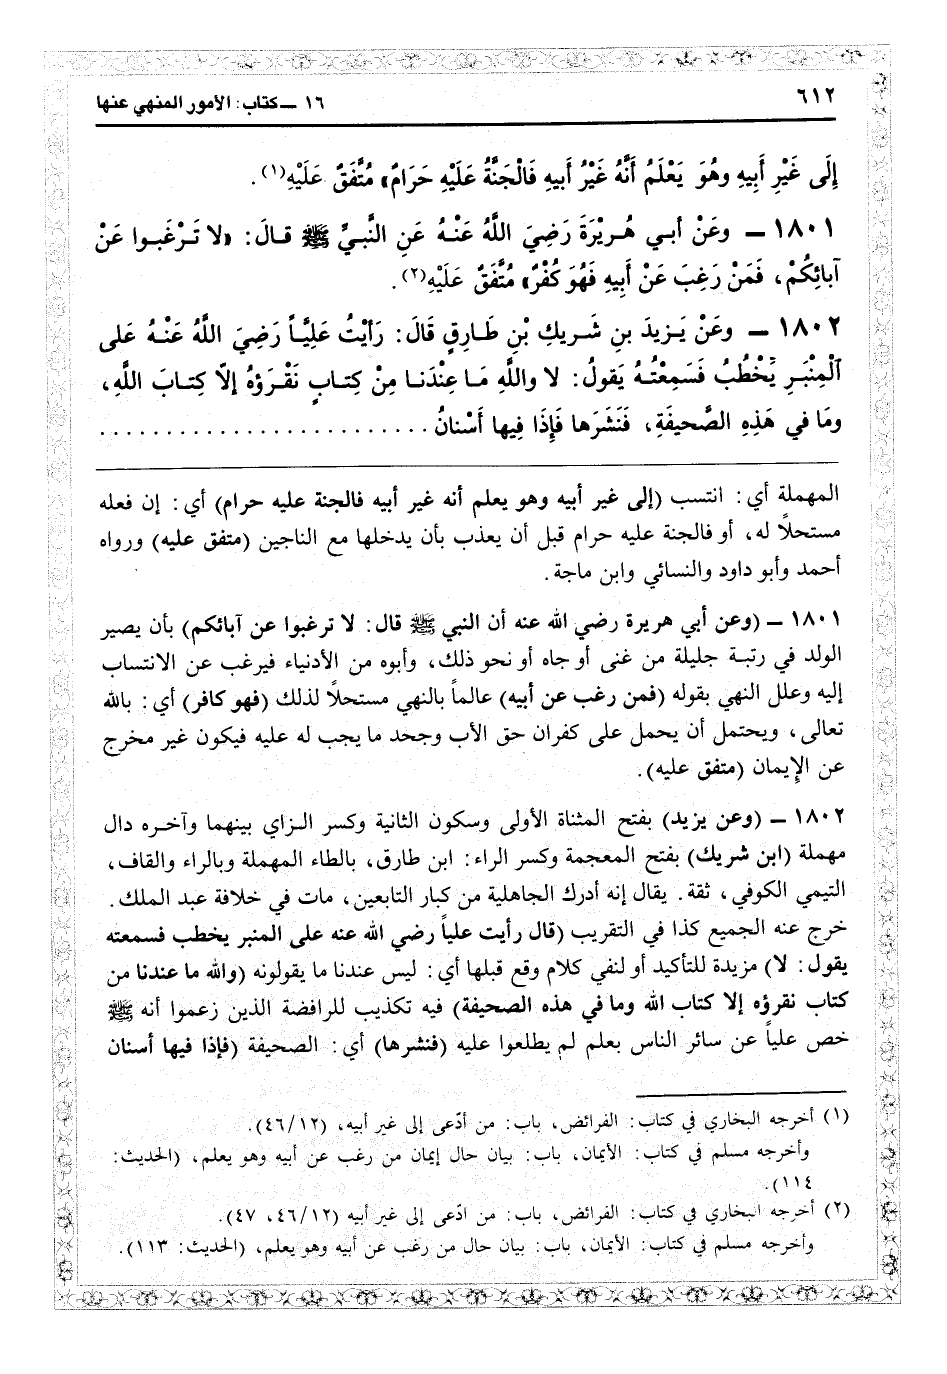 ٦١٢
١٦ ـ كتاب: الأمور المنهي عنها
إِلَى غَيْرِ أَبِيهِ وهُوَ يَعْلَمُ أَنَّهُ غَيْرُ أَبِيهِ فَالْجَنَّةُ عَلَيْهِ حَرَامٌ» مُتَّفَقٌ عَلَيْهِ(١).
١٨٠١ ـ وعَنْ أبي هُرَيْرَةَ رَضِيَ اللَّهُ عَنْهُ عَنِ النَّبيِّ ﷺ قالَ: «لا تَرْغَبوا عَنْ
آبائِكُمْ، فَمَنْ رَغِبَ عَنْ أَبِيهِ فَهُوَ كُفْرٌ» مُتَّفَقٌ عَلَيْهِ(٢).
١٨٠٢ ـ وعَنْ يَزِيدَ بنِ شَرِيكِ بْنِ طَارِقٍ قَالَ: رَأيْتُ عَلِيَّاً رَضِيَ اللَّهُ عَنْهُ عَلى
الْمِنْبَرِ يَخْطُبُ فَسَمِعْتُهُ يَقولُ: لا واللَّهِ مَا عِنْدَنا مِنْ كِتابٍ نَقْرَؤهُ إلّا كِتابَ اللَّهِ،
ومَا في هَذِهِ الصَّحيفَةِ، فَنَشَرَها فَإِذَا فِيها أَسْنانُ . . . . . . . . . . . . . . . . . . . . . . . .
المهملة أي: انتسب (إلى غير أبيه وهو يعلم أنه غير أبيه فالجنة عليه حرام) أي: إن فعله
مستحلاً له، أو فالجنة عليه حرام قبل أن يعذب بأن يدخلها مع الناجين (متفق عليه) ورواه
أحمد وأبو داود والنسائي وابن ماجة.
١٨٠١ ـ (وعن أبي هريرة رضي الله عنه أن النبي ﷺ قال: لا ترغبوا عن آبائكم) بأن يصير
الولد في رتبة جليلة من غنى أو جاه أو نحو ذلك، وأبوه من الأدنياء فيرغب عن الانتساب
إليه وعلل النهي بقوله (فمن رغب عن أبيه) عالماً بالنهي مستحلاً لذلك (فهو كافر) أي: بالله
تعالى، ويحتمل أن يحمل على كفران حق الأب وجحد ما يجب له عليه فيكون غير مخرج
عن الإيمان (متفق عليه).
١٨٠٢ ـ (وعن يزيد) بفتح المثناة الأولى وسكون الثانية وكسر الزاي بينهما وآخره دال
مهملة (ابن شريك) بفتح المعجمة وكسر الراء: ابن طارق، بالطاء المهملة وبالراء والقاف،
التيمي الكوفي، ثقة. يقال إنه أدرك الجاهلية من كبار التابعين، مات في خلافة عبد الملك.
خرج عنه الجميع كذا في التقريب (قال رأيت علياً رضي الله عنه على المنبر يخطب فسمعته
يقول: لا) مزيدة للتأكيد أو لنفي كلام وقع قبلها أي: ليس عندنا ما يقولونه (والله ما عندنا من
كتاب نقرؤه إلا كتاب الله وما في هذه الصحيفة) فيه تكذيب للرافضة الذين زعموا أنه ﷺ
خص علياً عن سائر الناس بعلم لم يطلعوا عليه (فنشرها) أي: الصحيفة (فإذا فيها أسنان
(١) أخرجه البخاري في كتاب: الفرائض، باب: من ادّعى إلى غير أبيه، (٤٦/١٢).
وأخرجه مسلم في كتاب: الأيمان، باب: بيان حال إيمان من رغب عن أبيه وهو يعلم، (الحديث:
١١٤).
(٢) أخرجه البخاري في كتاب: الفرائض، باب: من ادّعى إلى غير أبيه (٤٦/١٢، ٤٧).
وأخرجه مسلم في كتاب: الأيمان، باب: بيان حال من رغب عن أبيه وهو يعلم، (الحديث: ١١٣).